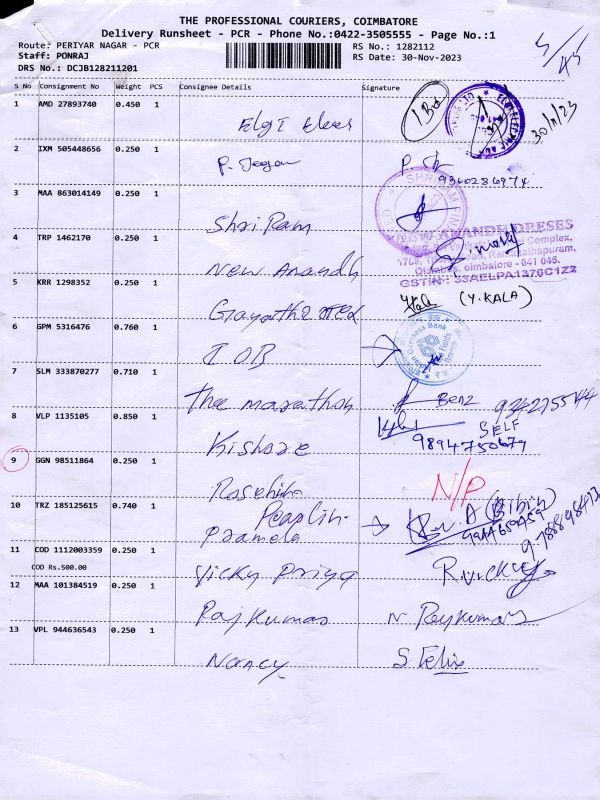 THE PROFESSIONAL COURIERS, COIMBATORE
Delivery Runsheet - PCR - Phone No.:0422-3505555 - Page No.:1
Route: PERIYAR NAGAR - PCR
RS No.: 1282112
Staff: PONRAJ
RS Date: 30-Nov-2023
DRS No.: DCJB128211201
5/45
S No Consignment No Weight PCS Consignee Details Signature
1 AMD 27893740 0.450 1 Elgi
30/11/23
2 IXM 505448656 0.250 1 P. Jegan
9360286974
3 MAA 863014149 0.250 1 Shri Ram
4 TRP 1462170 0.250 1 New Anandh
NEW ANANDH DRESES
GSTIN : 33AELPA1376C1Z2
5 KRR 1298352 0.250 1 Gayathri
(Y.KALA)
6 GPM 5316476 0.760 1 IOB
7 SLM 333870277 0.710 1 The marathon
Benz
8 VLP 1135105 0.850 1 Kishore
SELF
9894750679
9 GGN 98511864 0.250 1
N/P
10 TRZ 185125615 0.740 1 Pramela
11 COD 1112003359 0.250 1 Vicky Priya R.Vicky
COD Rs.500.00
12 MAA 101384519 0.250 1 Rajkumar N Rajkumar
13 VPL 944636543 0.250 1 Nancy S Felix